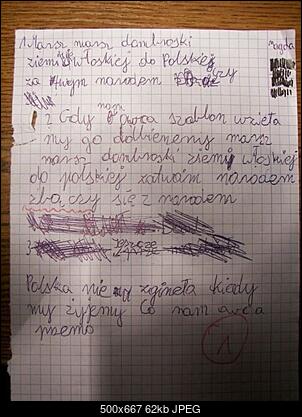 Magda
1. Marsz marsz dombroski
ziemi włoskiej do Polskiej
za twym narodem
2 Gdy nam owca szablon wzieła
my go dobienemy marsz
marsz dombroski ziemi włoskiej
do polskiej zatwom narodem
złączy się z narodem
Polska nie zgineła kiedy
my żyjemy co nam owca
przemo
1
500x667 62kb JPEG